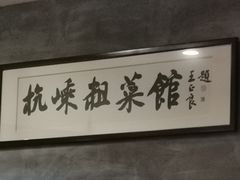 杭嵊粗菜館
王正良題